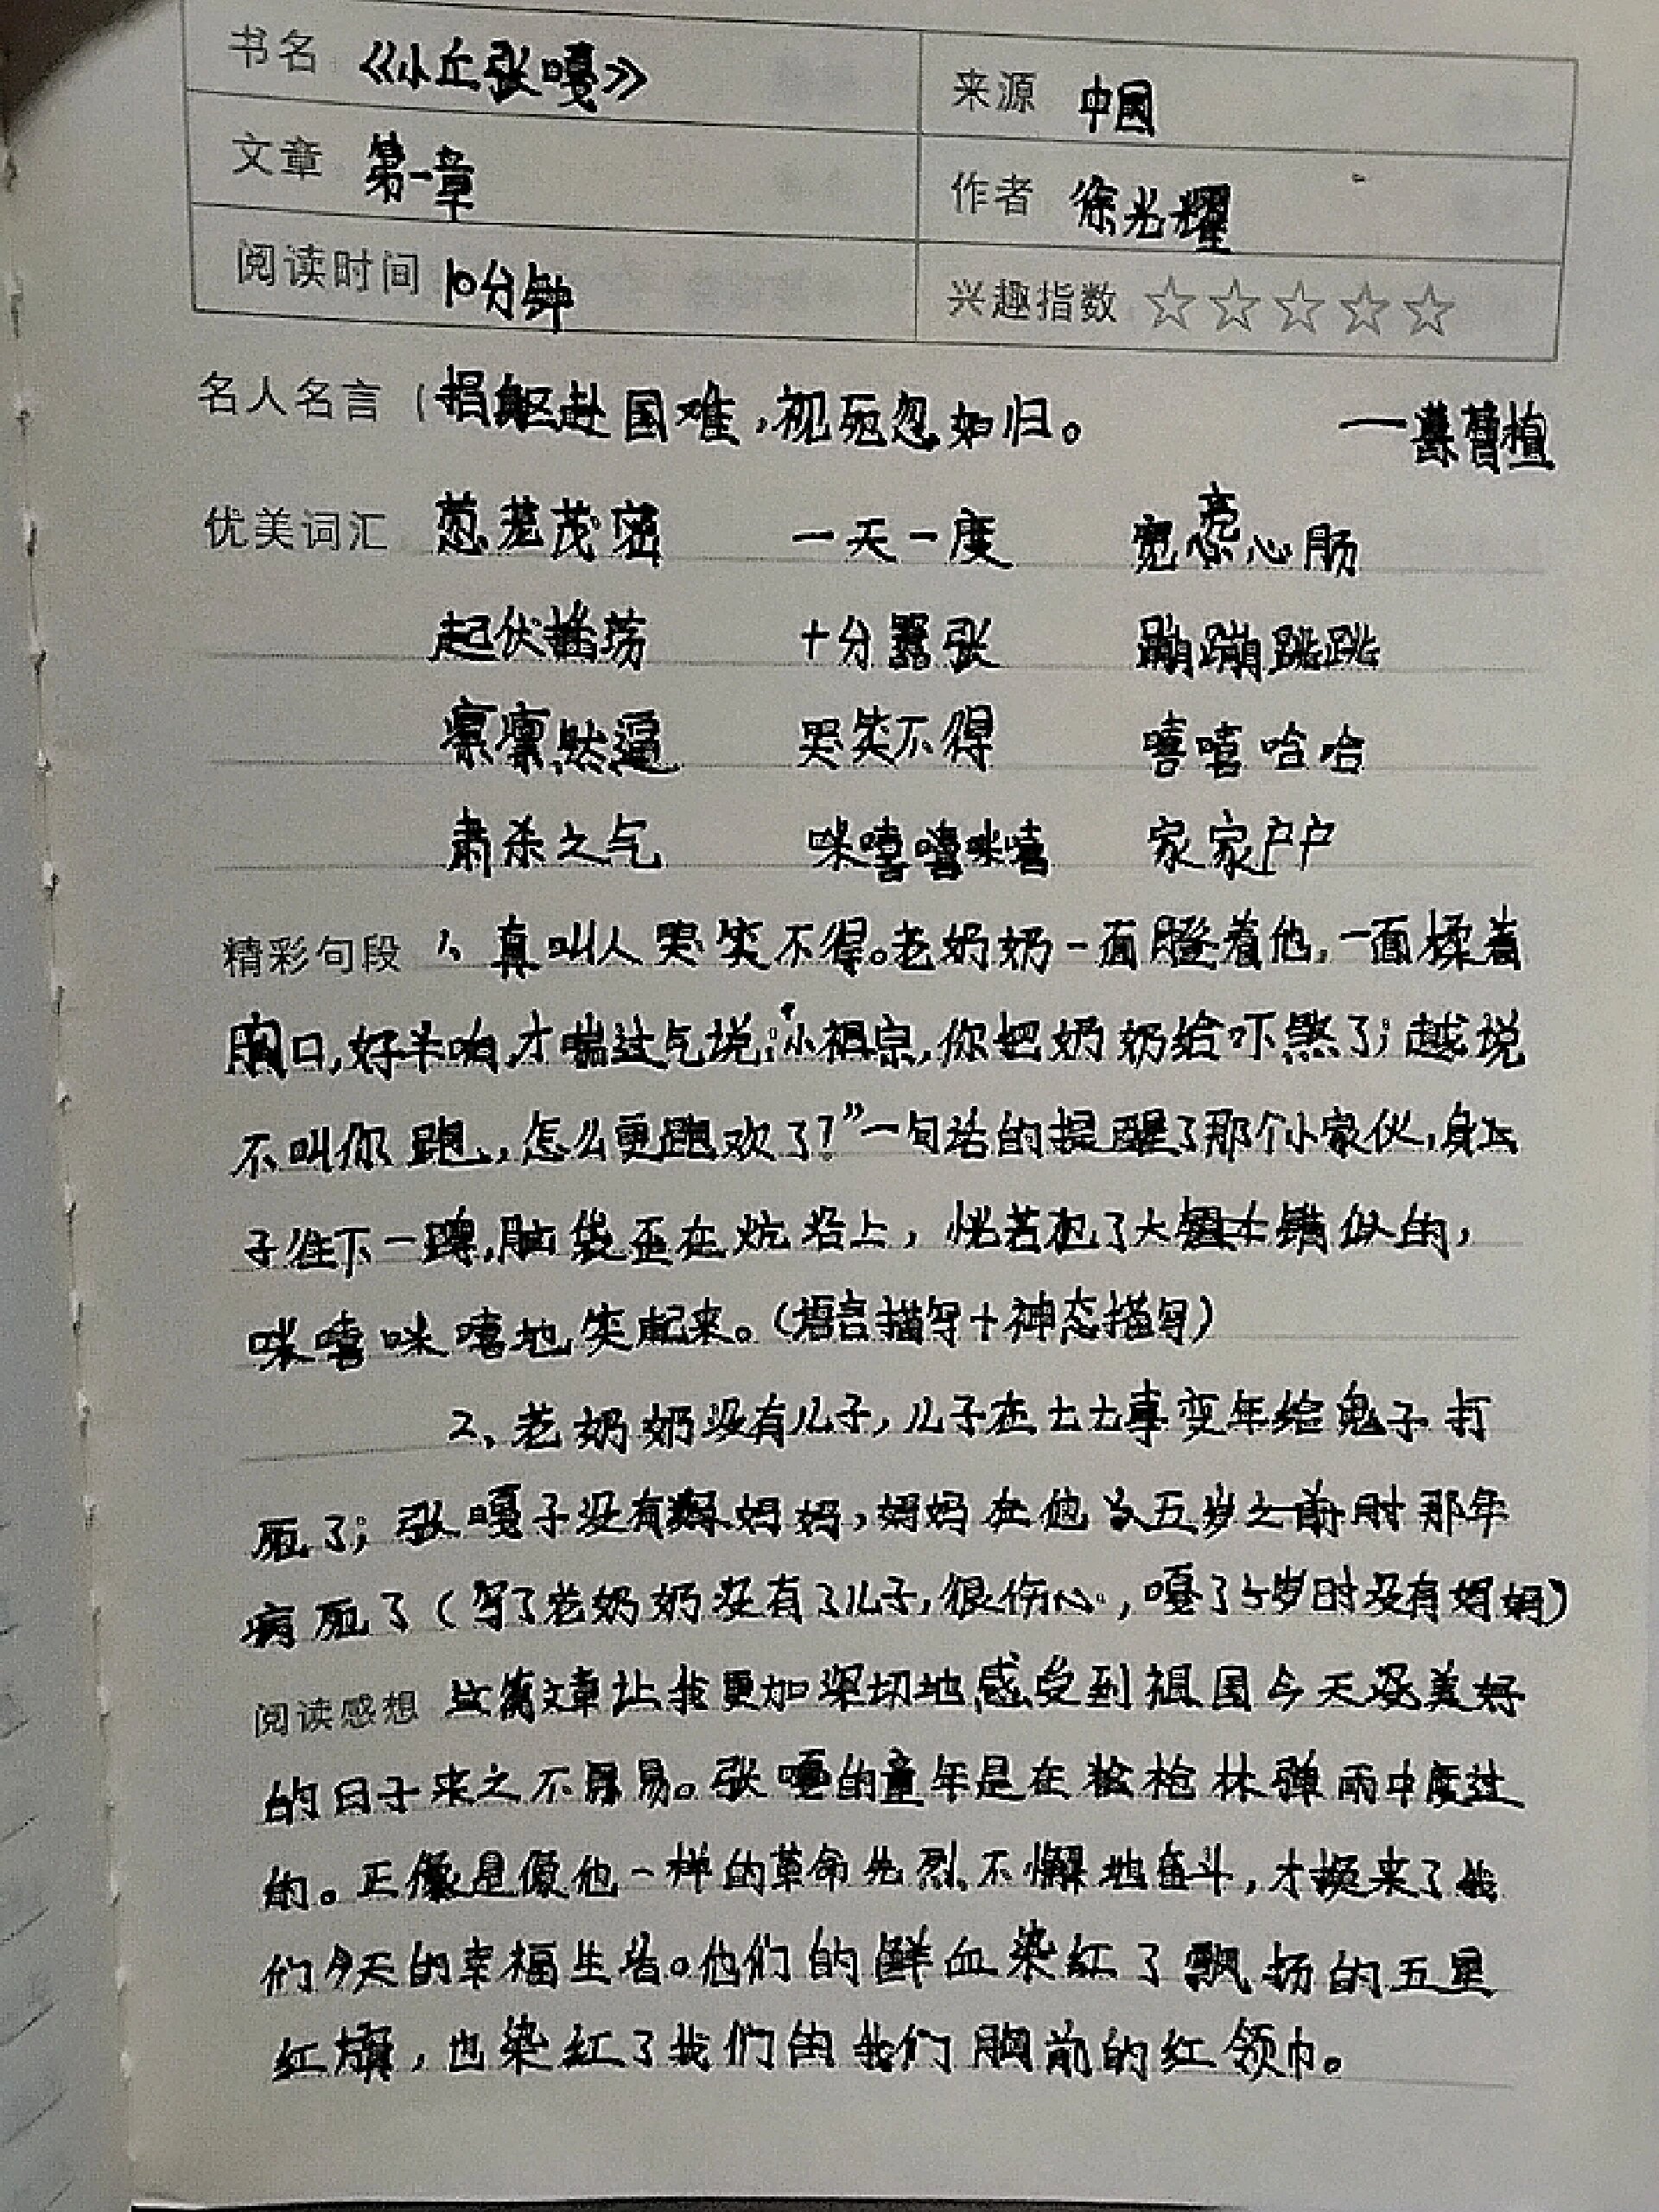 书名 《小丘张嘎》 来源 中国
文章 第一章 作者 徐光耀
阅读时间 10分钟 兴趣指数 ☆☆☆☆☆
名人名言 捐躯赴国难,视死忽如归。 ——曹植
优美词汇 葱茏茂密 一天一度 宽亮心肠
起伏摇荡 十分嚣张 蹦蹦跳跳
凛凛然逼 哭笑不得 嘻嘻哈哈
肃杀之气 咪嘻咪嘻 家家户户
精彩句段 1、真叫人哭笑不得。老奶奶一面瞪着他,一面揉着
胸口,好半响才喘过气说:“小祖宗,你把奶奶给吓煞了;越说
不叫你跑,怎么更跑欢了?”一句话的提醒了那个小家伙,身
子往下一蹲,脑袋歪在炕沿上,恍若犯了大错似的,
咪嘻咪嘻地笑起来。(语言描写+神态描写)
2、老奶奶没有儿子,儿子在七七事变年给鬼子打
死了;张嘎子没有妈妈,妈妈在他五岁那年
病死了(写了老奶奶没有了儿子,很伤心,嘎子5岁时没有妈妈)
阅读感想 这篇文章让我更加深切地感受到祖国今天这美好
的日子来之不易。张嘎的童年是在枪林弹雨中度过
的。正是像他一样的革命先烈不懈地奋斗,才换来了我
们今天的幸福生活。他们的鲜血染红了飘扬的五星
红旗,也染红了我们的我们胸前的红领巾。